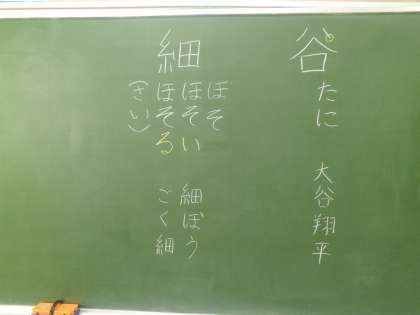 谷
たに
大谷翔平
細
ぼそ
ほそい
ほそる
(さい)
細ぼう
ごく細